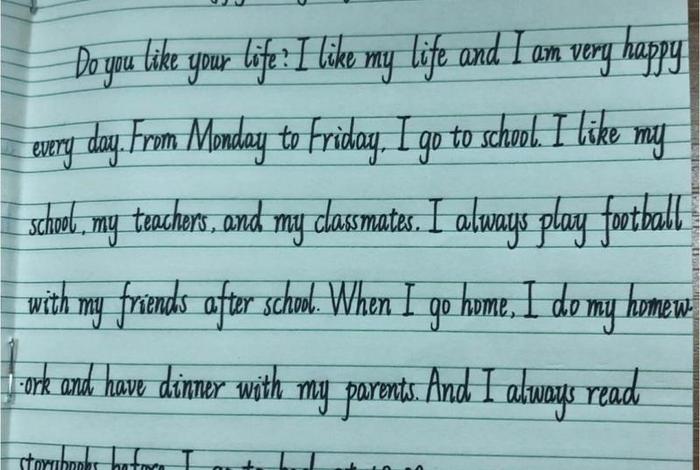 Do you like your life? I like my life and I am very happy
every day. From Monday to Friday, I go to school. I like my
school, my teachers, and my classmates. I always play football
with my friends after school. When I go home, I do my homew-
-ork and have dinner with my parents. And I always read
storybooks before I go to bed at